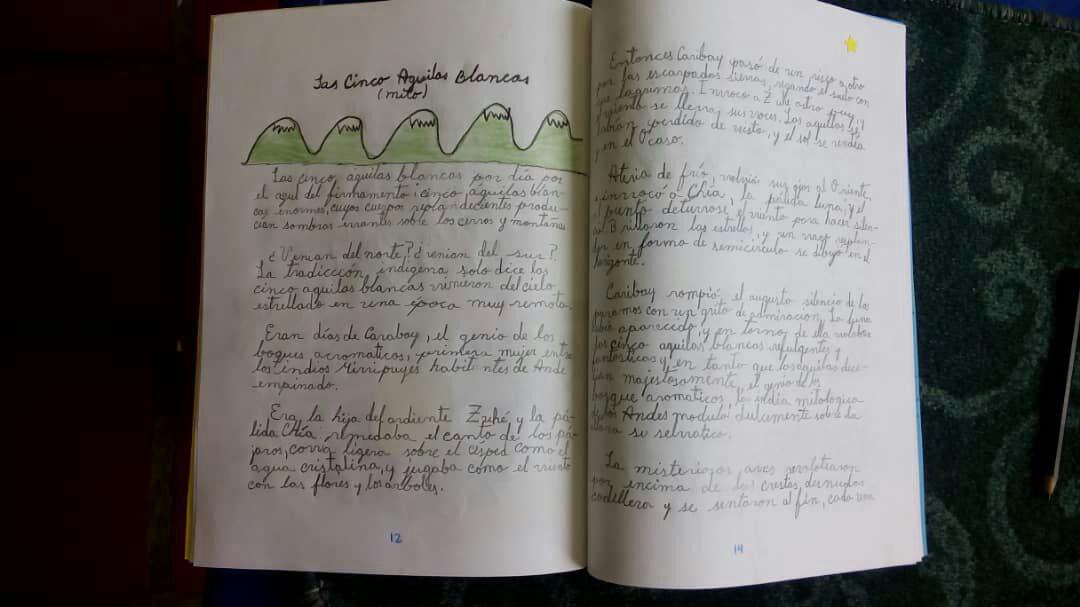 Las Cinco Aguilas Blancas
(mito)
Las cinco, aguilas blancas por día por
el azul del firmamento; cinco aguilas blan-
cas enormes, cuyos cuerpos resplandecientes produ-
cian sombras errantes sobre los cerros y montañas
¿Venian del norte? ¿venian del sur?
La tradicccion indigena solo dice las
cinco aguilas blancas vinieron del cielo
estrellado en una epoca muy remota.
Eran días de Caraboy, el genio de los
boques acromaticos, primera mujer entre
los indios Mirripuyes habitantes de Ande
empinado.
Era la hija del ardiente Zuhé y la pá-
lida Chía. remedaba el canto de los pá-
jaros, corria ligera sobre el césped como el
agua cristalina, y jugaba como el viento
con las flores y los arboles.
12
Entonces Caribay pasó de un risco a otro
por las escarpadas sierras, regando el suelo con
lagrimas. Invoco a Zuhé astro rey, y
el viento se lleva sus voces. Las aguilas se
habían perdido de vista, y el sol se rendía
y en el Ocaso.
Ateria de frío, volvió sus ojos al Oriente,
e invocó a Chía, la pálida luna; y al
punto deturrose el viento para hacer silen-
Brillaron las estrellas, y un vago resplan-
dor en forma de semicirculo se dibujo en el
horizonte.
Caribay rompió el augusto silencio de los
paramos con un grito de admiracion. La luna
había aparecido, y en torno de ella volaban
las cinco aguilas blancas refulgentes y
fantasticas y en tanto que las aguilas desce-
dian majestosamente, el genio de los
bosque aromaticos, la india mitologica
de los Andes moduló dulcemente sobre la
su selvatico.
La misteriosas aves revolotearon
por encima de las crestas desnudas
cordillera y se sentaron al fin, cada una
14